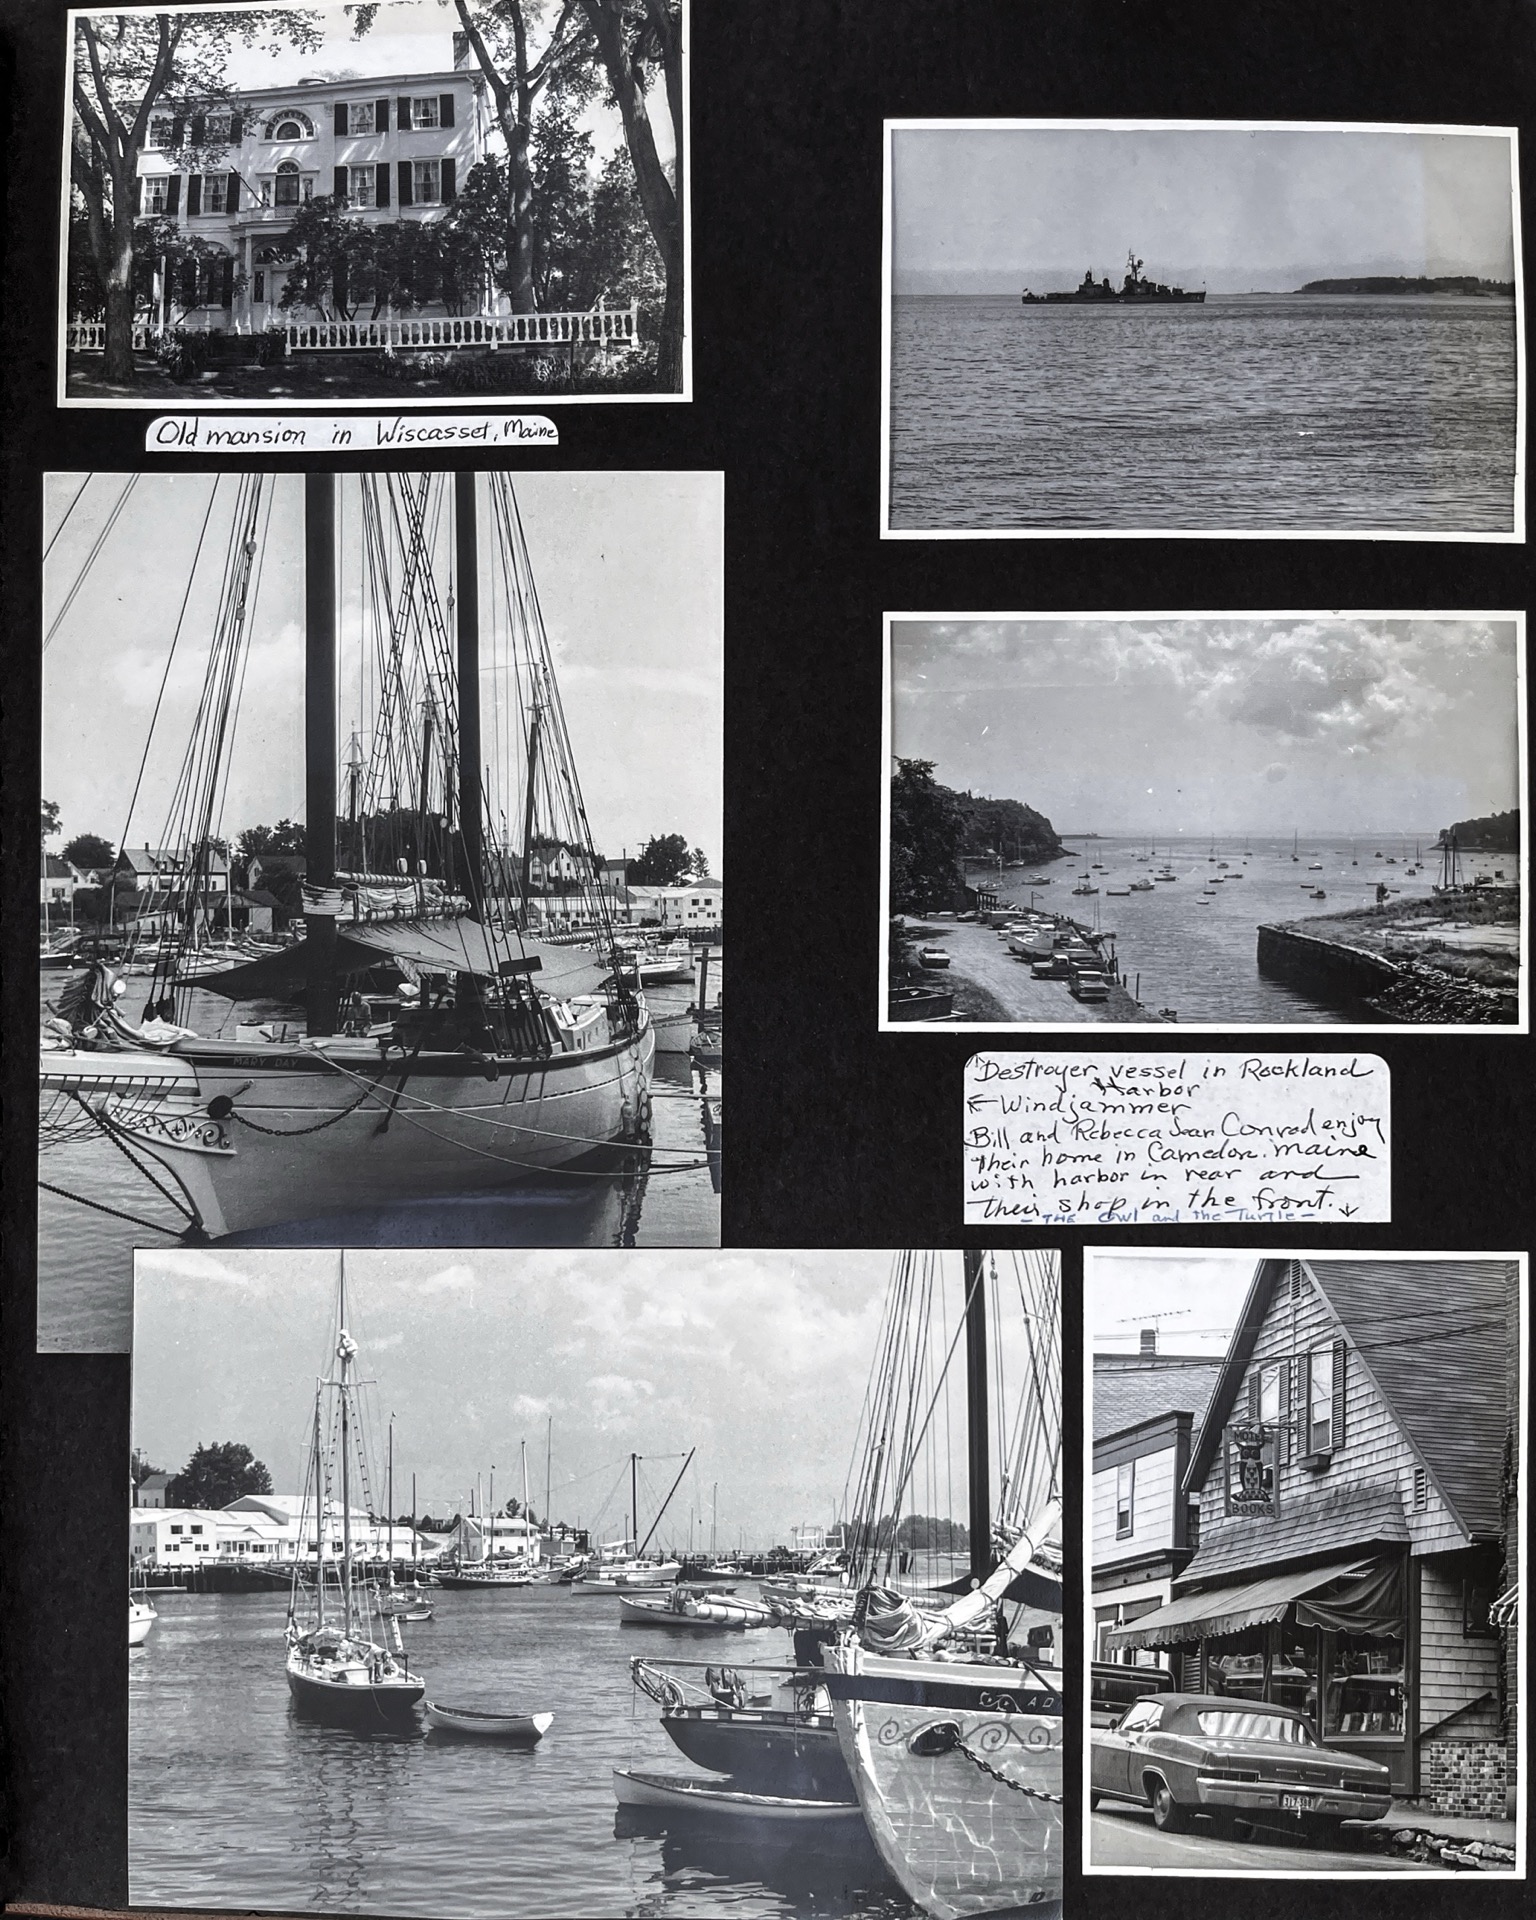 Old mansion in Wiscasset, Maine
MARY DAY
↑ Destroyer vessel in Rockland
Harbor
← Windjammer
Bill and Rebecca Jean Conrad enjoy
their home in Camedon. Maine
with harbor in rear and
their shop in the front. ↓
- THE Owl and the Turtle -
AD
BOOKS